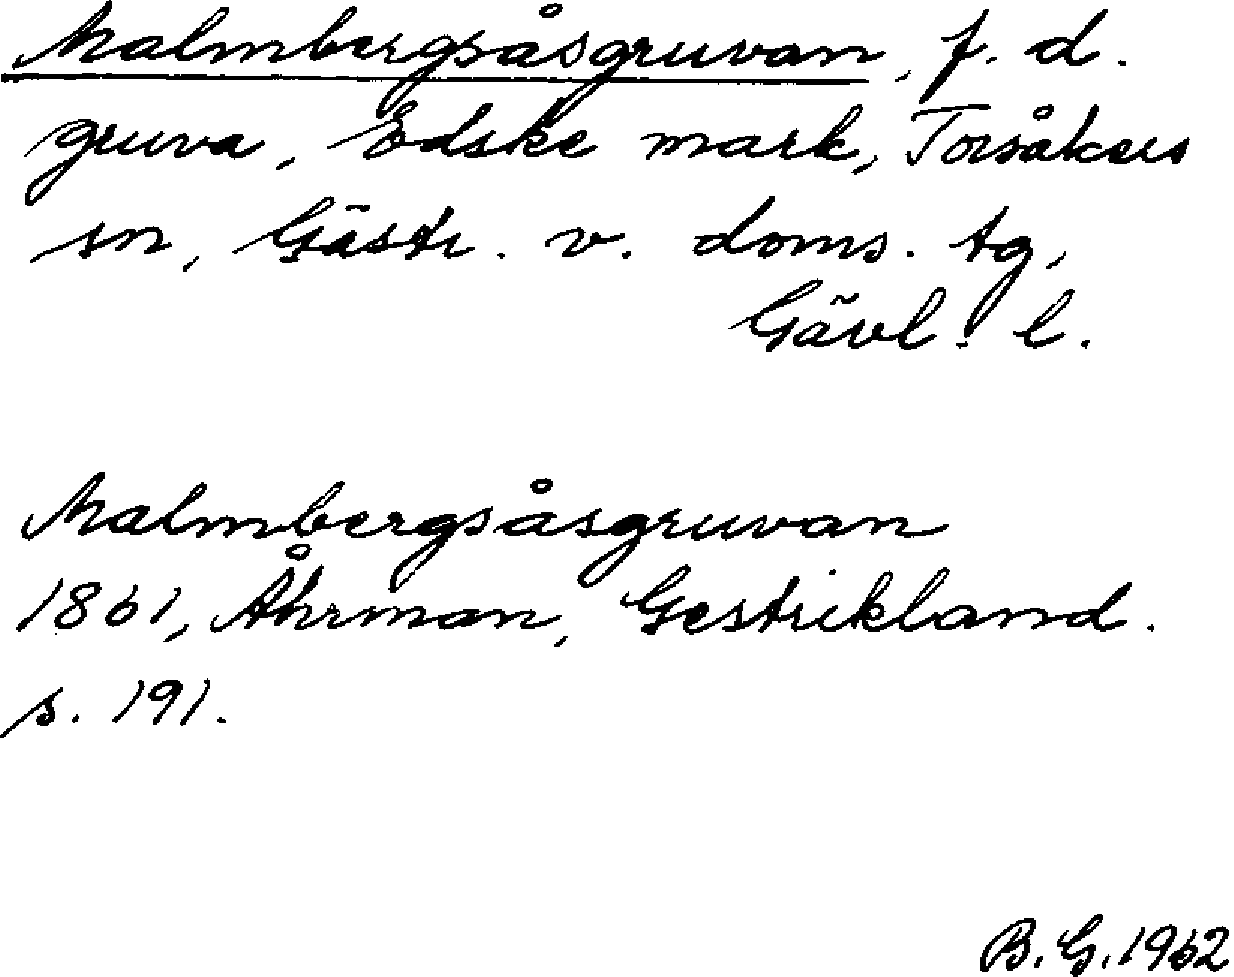 Malmbergsåsgruvan, f. d.
gruva, Edske mark, Torsåkers
sn, Gästr. v. doms. tg,
Gävl. l.
Malmbergsåsgruvan
1861, Åhrman, Gestrikland.
s. 191.
B. G. 1962